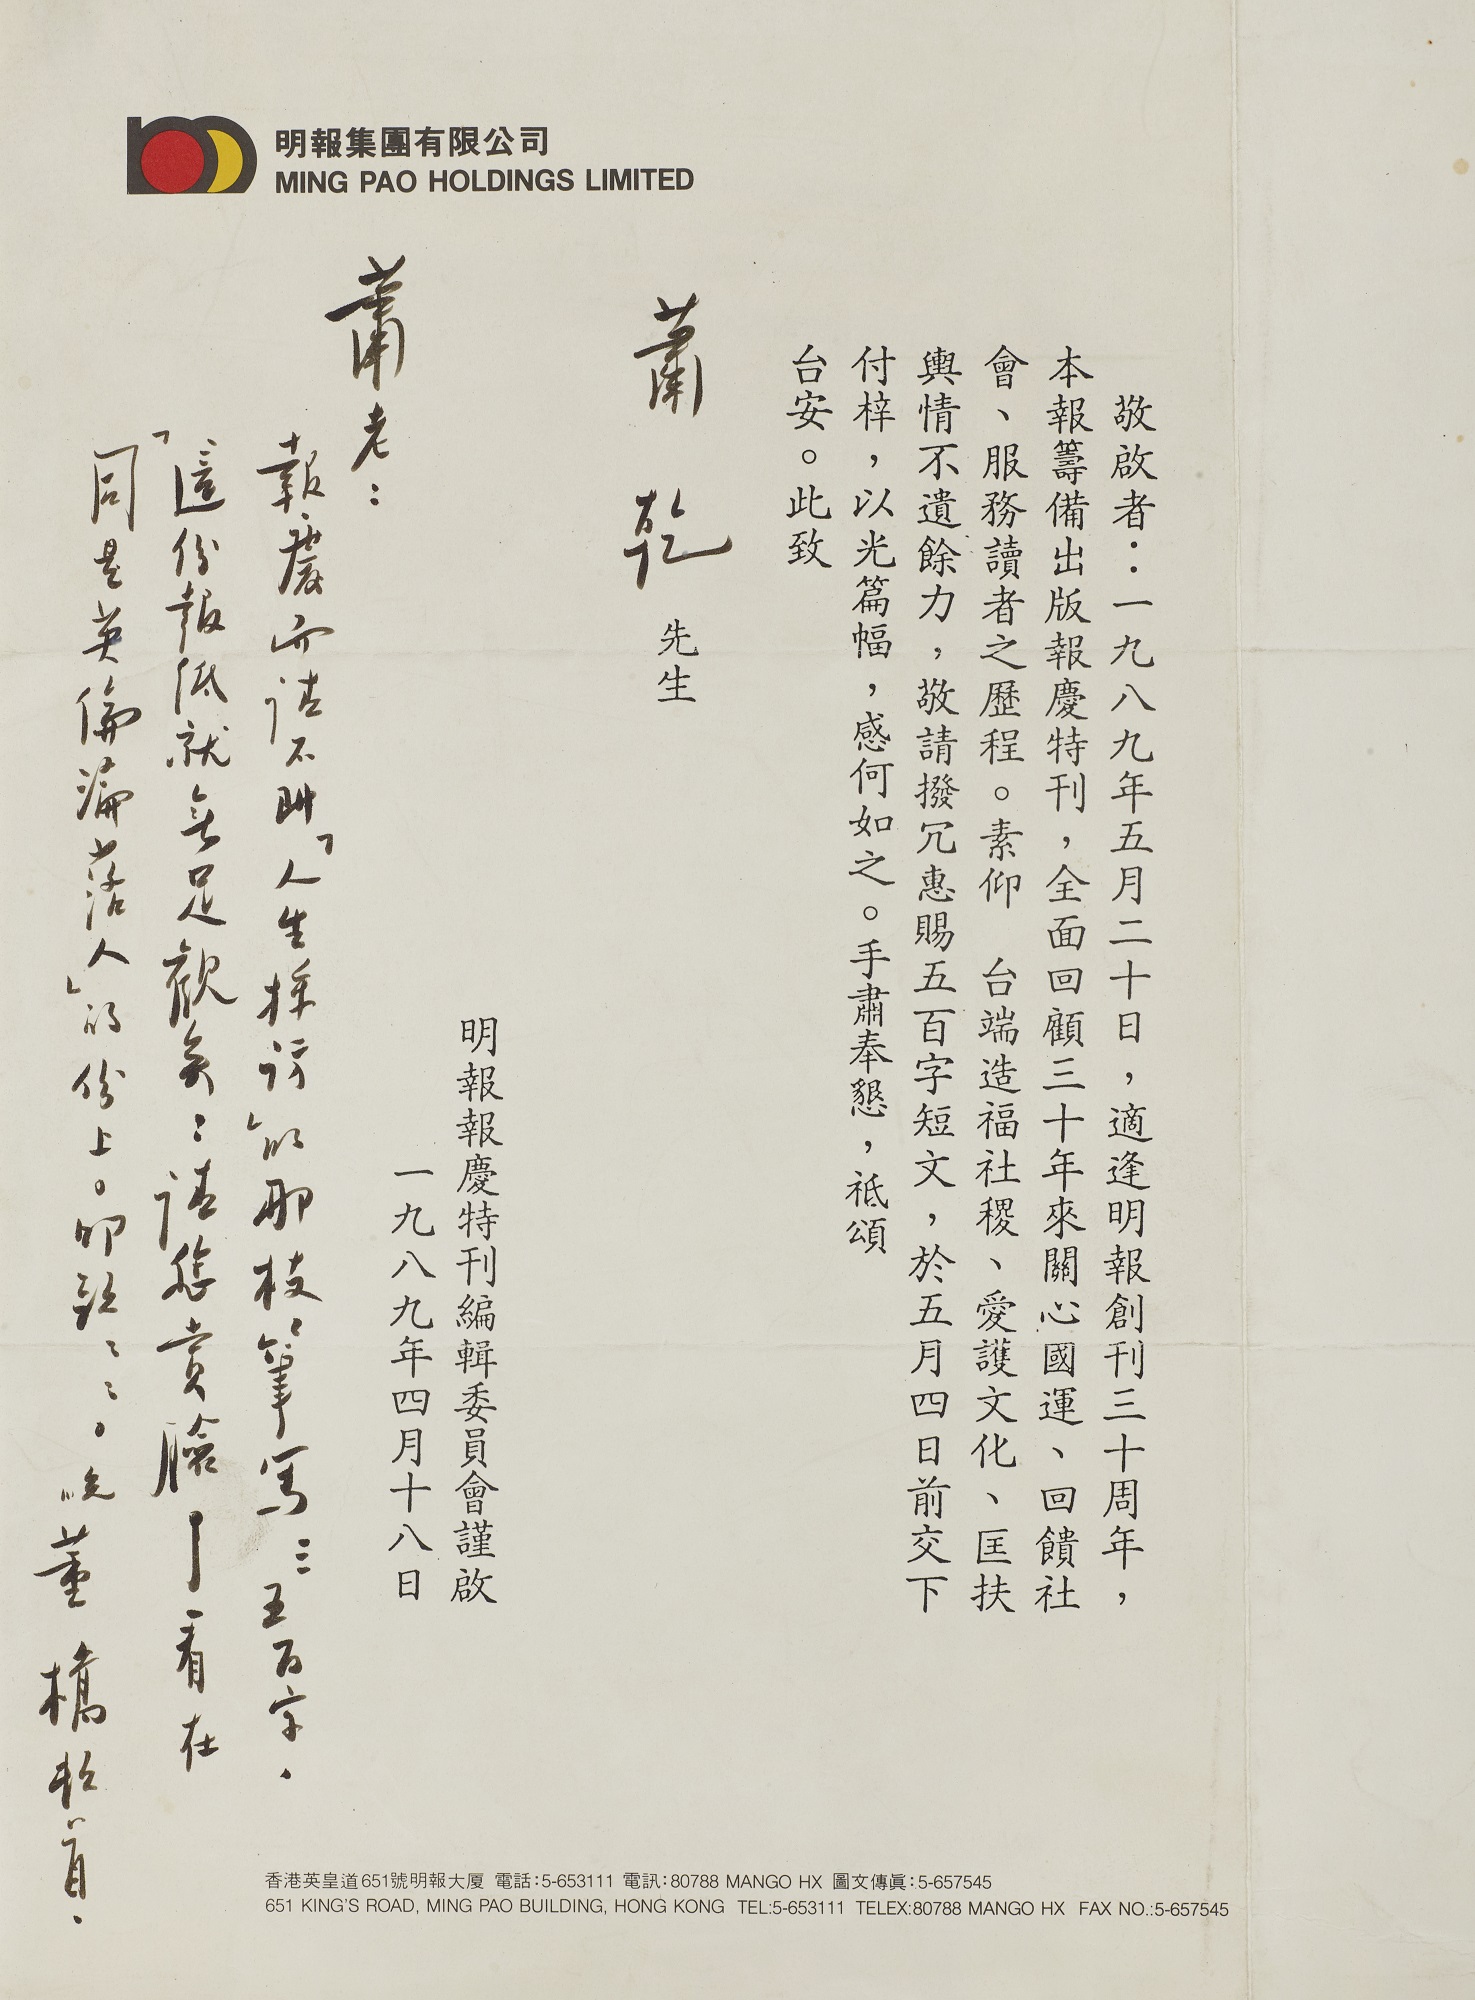 明報集團有限公司
MING PAO HOLDINGS LIMITED
敬啟者：一九八九年五月二十日，適逢明報創刊三十周年，
本報籌備出版報慶特刊，全面回顧三十年來關心國運、回饋社
會、服務讀者之歷程。素仰　台端造福社稷、愛護文化、匡扶
輿情不遺餘力，敬請撥冗惠賜五百字短文，於五月四日前交下
付梓，以光篇幅，感何如之。手肅奉懇，祗頌
台安。此致
蕭乾先生
明報報慶特刊編輯委員會謹啟
一九八九年四月十八日
蕭老：
報慶而請不動「人生採訪」的那枝筆寫三五百字，
這份報紙就無足觀矣：請您賞臉——看在
「同是英倫淪落人」的份上。叩頭ミミ。晚董橋頓首。
香港英皇道651號明報大厦 電話：5-653111 電訊：80788 MANGO HX 圖文傳眞：5-657545
651 KING'S ROAD, MING PAO BUILDING, HONG KONG TEL:5-653111 TELEX:80788 MANGO HX FAX NO.:5-657545